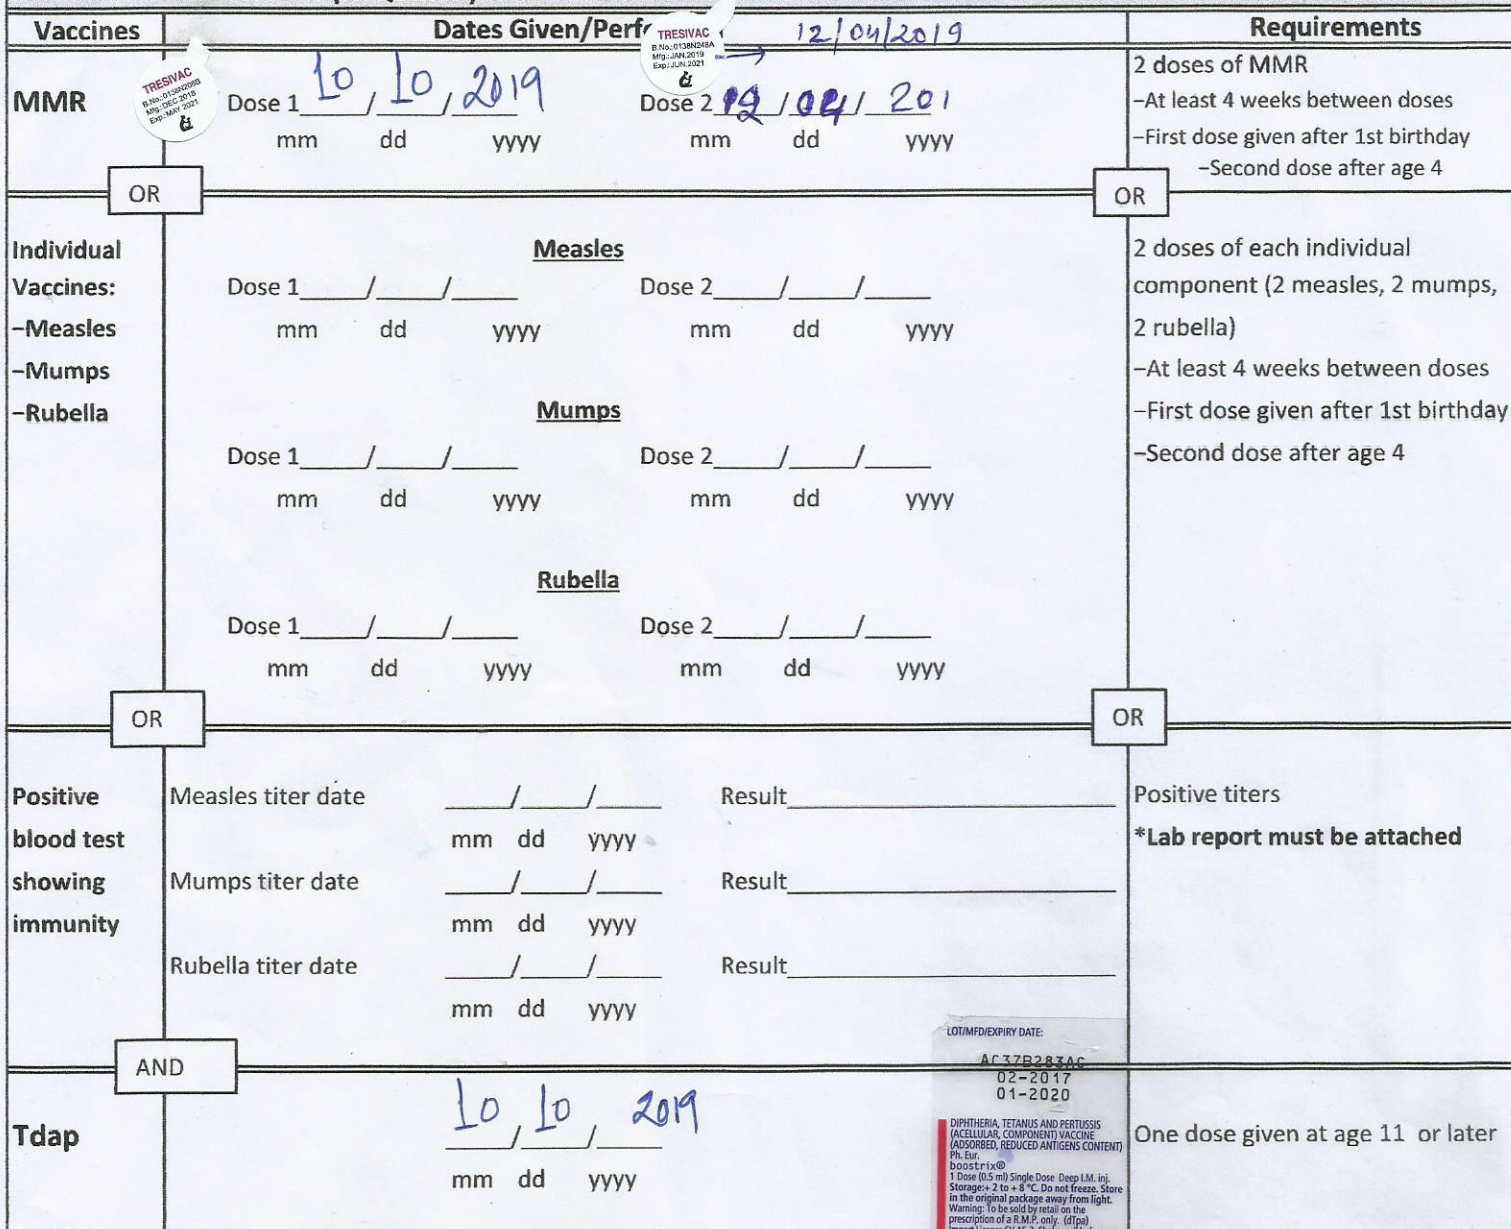 Vaccines
Dates Given/Perfo
12/04/2019
Requirements
TRESIVAC
B.No.:0138N248A
Mfg.:JAN.2019
Exp:JUN.2021
TRESIVAC
Mfg.:DEC.2018
Exp:MAY 2021
MMR
Dose 1 10 / 10 / 2019
Dose 2 12 / 04 / 201
mm dd yyyy
mm dd yyyy
2 doses of MMR
-At least 4 weeks between doses
-First dose given after 1st birthday
-Second dose after age 4
OR
OR
Individual
Vaccines:
-Measles
-Mumps
-Rubella
Measles
Dose 1____/____/____
Dose 2____/____/____
mm dd yyyy
mm dd yyyy
Mumps
Dose 1____/____/____
Dose 2____/____/____
mm dd yyyy
mm dd yyyy
Rubella
Dose 1____/____/____
Dose 2____/____/____
mm dd yyyy
mm dd yyyy
2 doses of each individual
component (2 measles, 2 mumps,
2 rubella)
-At least 4 weeks between doses
-First dose given after 1st birthday
-Second dose after age 4
OR
OR
Positive
blood test
showing
immunity
Measles titer date ____/____/____ Result____
mm dd yyyy
Mumps titer date ____/____/____ Result____
mm dd yyyy
Rubella titer date ____/____/____ Result____
mm dd yyyy
Positive titers
*Lab report must be attached
AND
Tdap
10 / 10 / 2019
mm dd yyyy
LOT/MFD/EXPIRY DATE:
AC37B283AC
02-2017
01-2020
DIPHTHERIA, TETANUS AND PERTUSSIS
(ACELLULAR, COMPONENT) VACCINE
(ADSORBED, REDUCED ANTIGENS CONTENT)
Ph. Eur.
boostrix®
1 Dose (0.5 ml) Single Dose Deep I.M. inj.
Storage:+ 2 to + 8 °C. Do not freeze. Store
in the original package away from light.
Warning: To be sold by retail on the
prescription of a R.M.P. only. (dTpa)
One dose given at age 11 or later